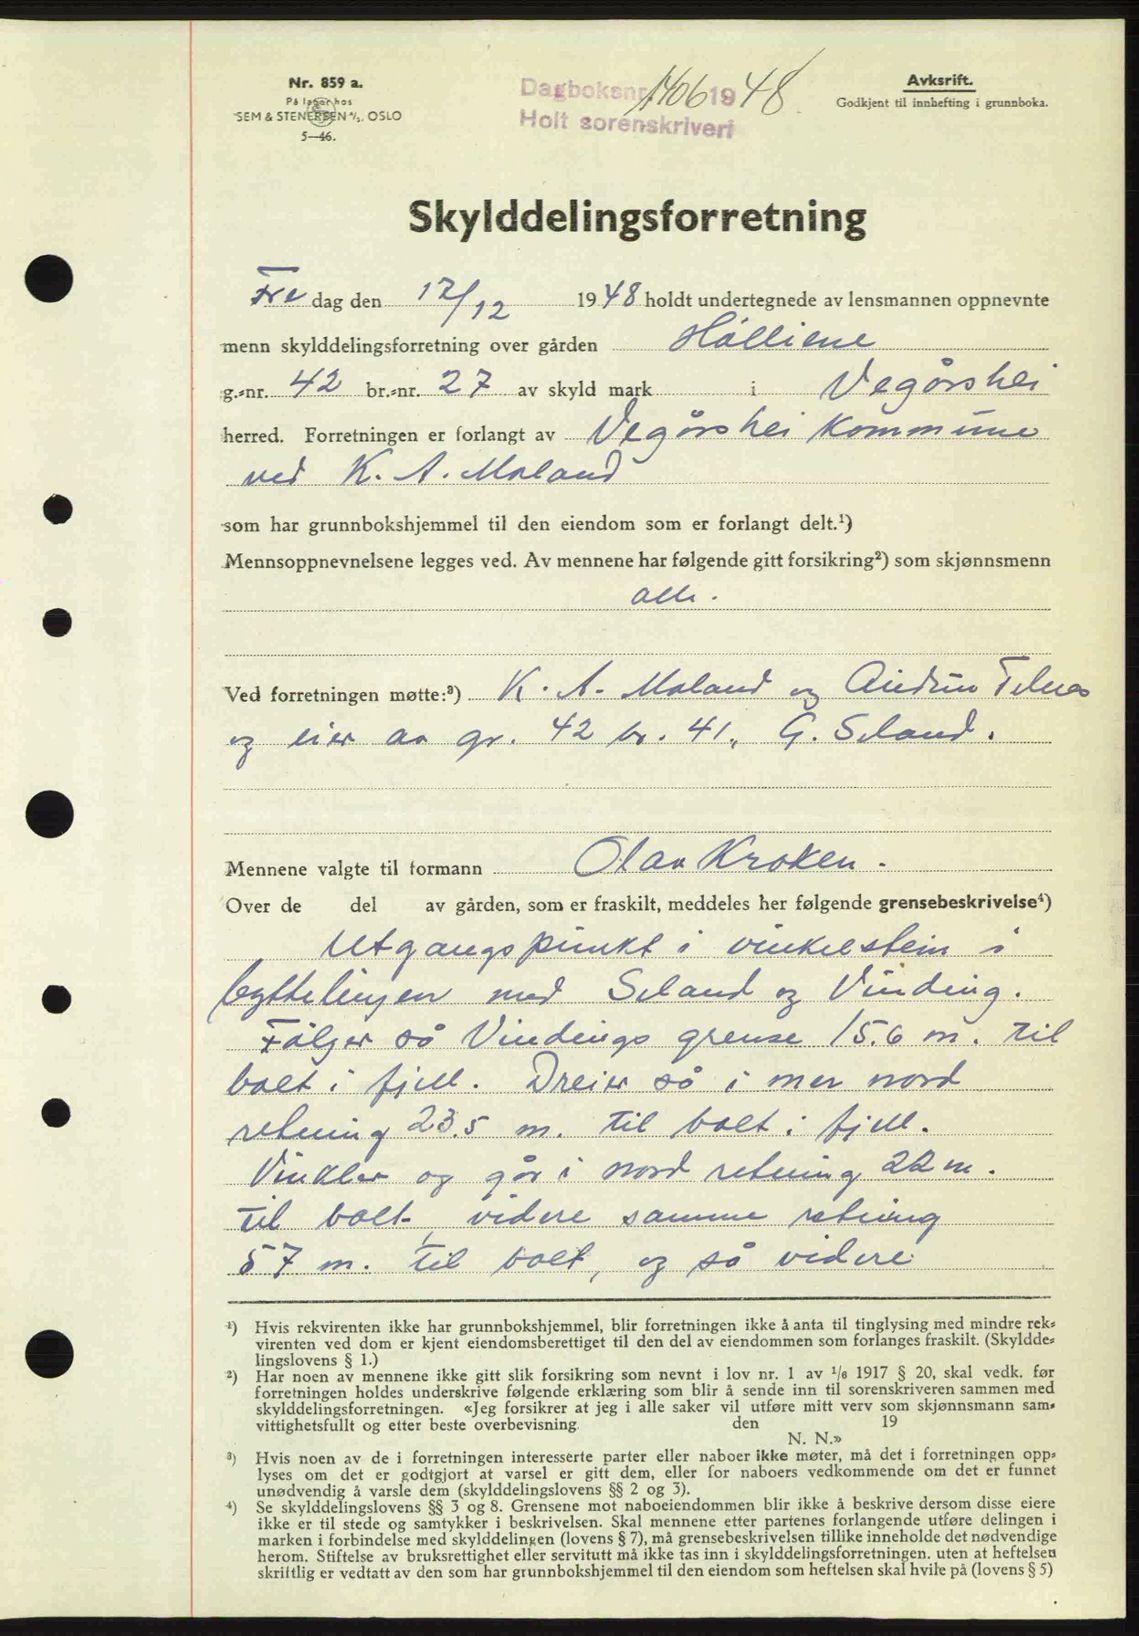 Nr. 859 a.
På lager hos
SEM & STENERSEN A/S, OSLO
5—46.
Dagboksnr. 1406 1948
Holt sorenskriveri
Avksrift.
Godkjent til innhefting i grunnboka.
Skylddelingsforretning
Fre dag den 17/12 1948 holdt undertegnede av lensmannen oppnevnte
menn skylddelingsforretning over gården Hålliene
g.-nr. 42 br.-nr. 27 av skyld mark i Vegårshei
herred. Forretningen er forlangt av Vegårshei kommune
ved K. A. Moland
som har grunnbokshjemmel til den eiendom som er forlangt delt.¹)
Mennsoppnevnelsene legges ved. Av mennene har følgende gitt forsikring²) som skjønnsmenn
alle.
Ved forretningen møtte:³) K. A. Moland og Telnes
og eier av gr. 42 br. 41, G. Seland.
Mennene valgte til formann Olav Kroken.
Over de del av gården, som er fraskilt, meddeles her følgende grensebeskrivelse⁴)
Utgangspunkt i vinkelstein i
byttelinjen med Seland og Vinding.
Følger så Vindings grense 15.6 m. til
bolt i fjell. Dreier så i mer nord
retning 23.5 m. til bolt i fjell.
Vinkler og går i nord retning 22 m.
til bolt, videre samme retning
57 m. til bolt, og så videre
¹) Hvis rekvirenten ikke har grunnbokshjemmel, blir forretningen ikke å anta til tinglysing med mindre rek-
virenten ved dom er kjent eiendomsberettiget til den del av eiendommen som forlanges fraskilt. (Skyldde-
lingslovens § 1.)
²) Har noen av mennene ikke gitt slik forsikring som nevnt i lov nr. 1 av 1/6 1917 § 20, skal vedk. før
forretningen holdes underskrive følgende erklæring som blir å sende inn til sorenskriveren sammen med
skylddelingsforretningen. «Jeg forsikrer at jeg i alle saker vil utføre mitt verv som skjønnsmann sam-
vittighetsfullt og etter beste overbevisning. den 19
N. N.»
³) Hvis noen av de i forretningen interesserte parter eller naboer ikke møter, må det i forretningen opp-
lyses om det er godtgjort at varsel er gitt dem, eller for naboers vedkommende om det er funnet
unødvendig å varsle dem (skylddelingslovens §§ 2 og 3).
⁴) Se skylddelingslovens §§ 3 og 8. Grensene mot naboeiendommen blir ikke å beskrive dersom disse eiere
ikke er til stede og samtykker i beskrivelsen. Skal mennene etter partenes forlangende utføre delingen i
marken i forbindelse med skylddelingen (lovens § 7), må grensebeskrivelsen tillike inneholde det nødvendige
herom. Stiftelse av bruksrettighet eller servitutt må ikke tas inn i skylddelingsforretningen. uten at heftelsen
skriftlig er vedtatt av den som har grunnbokshjemmel til den eiendom som heftelsen skal hvile på (lovens § 5)